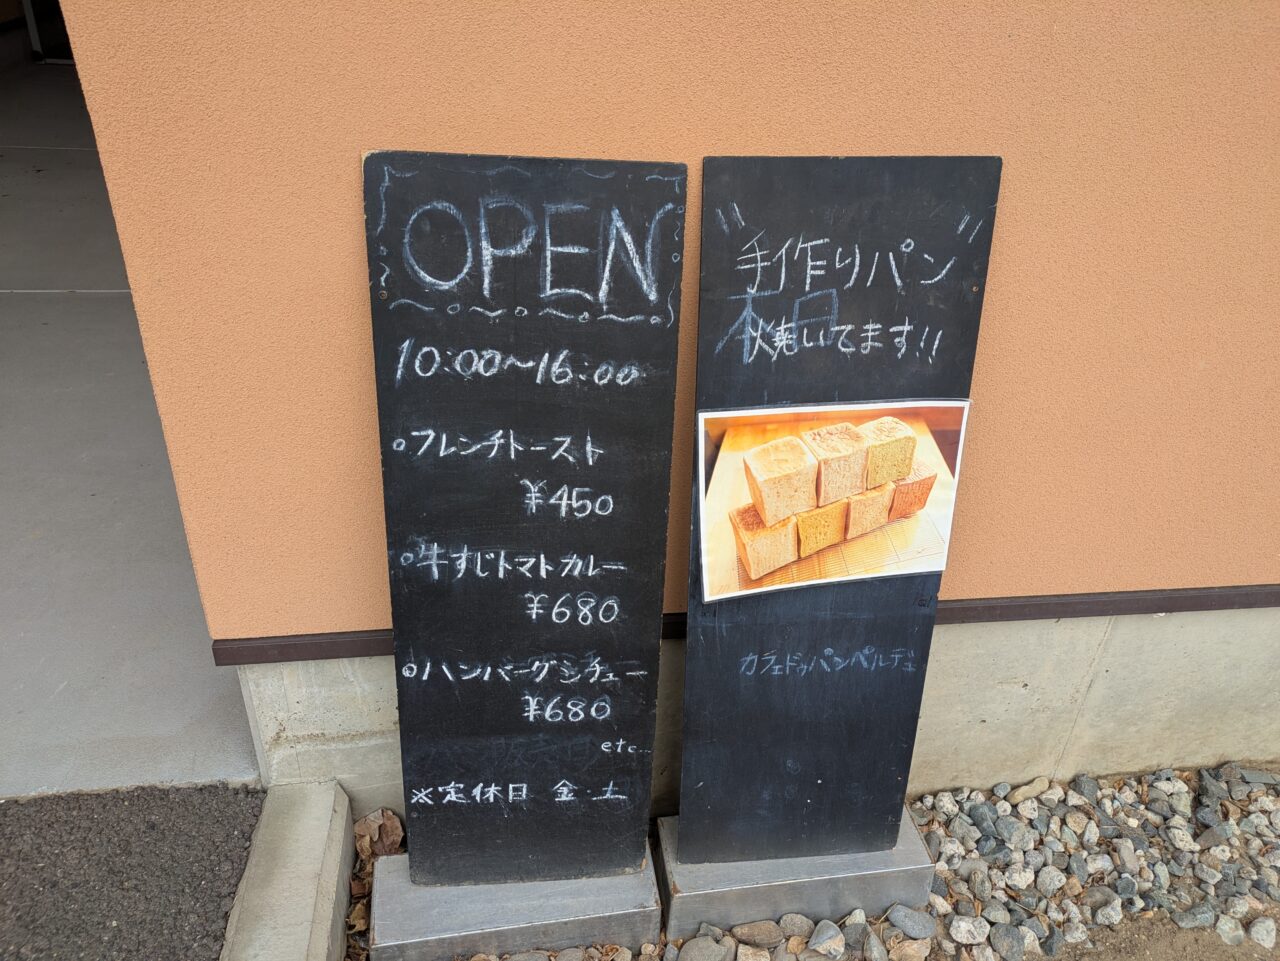 OPEN
10:00~16:00
○フレンチトースト
¥450
○牛すじトマトカレー
¥680
○ハンバーグシチュー
¥680
etc...
※定休日 金・土
"手作りパン"
本日
焼いてます!!
カフェドゥパンペルデュ